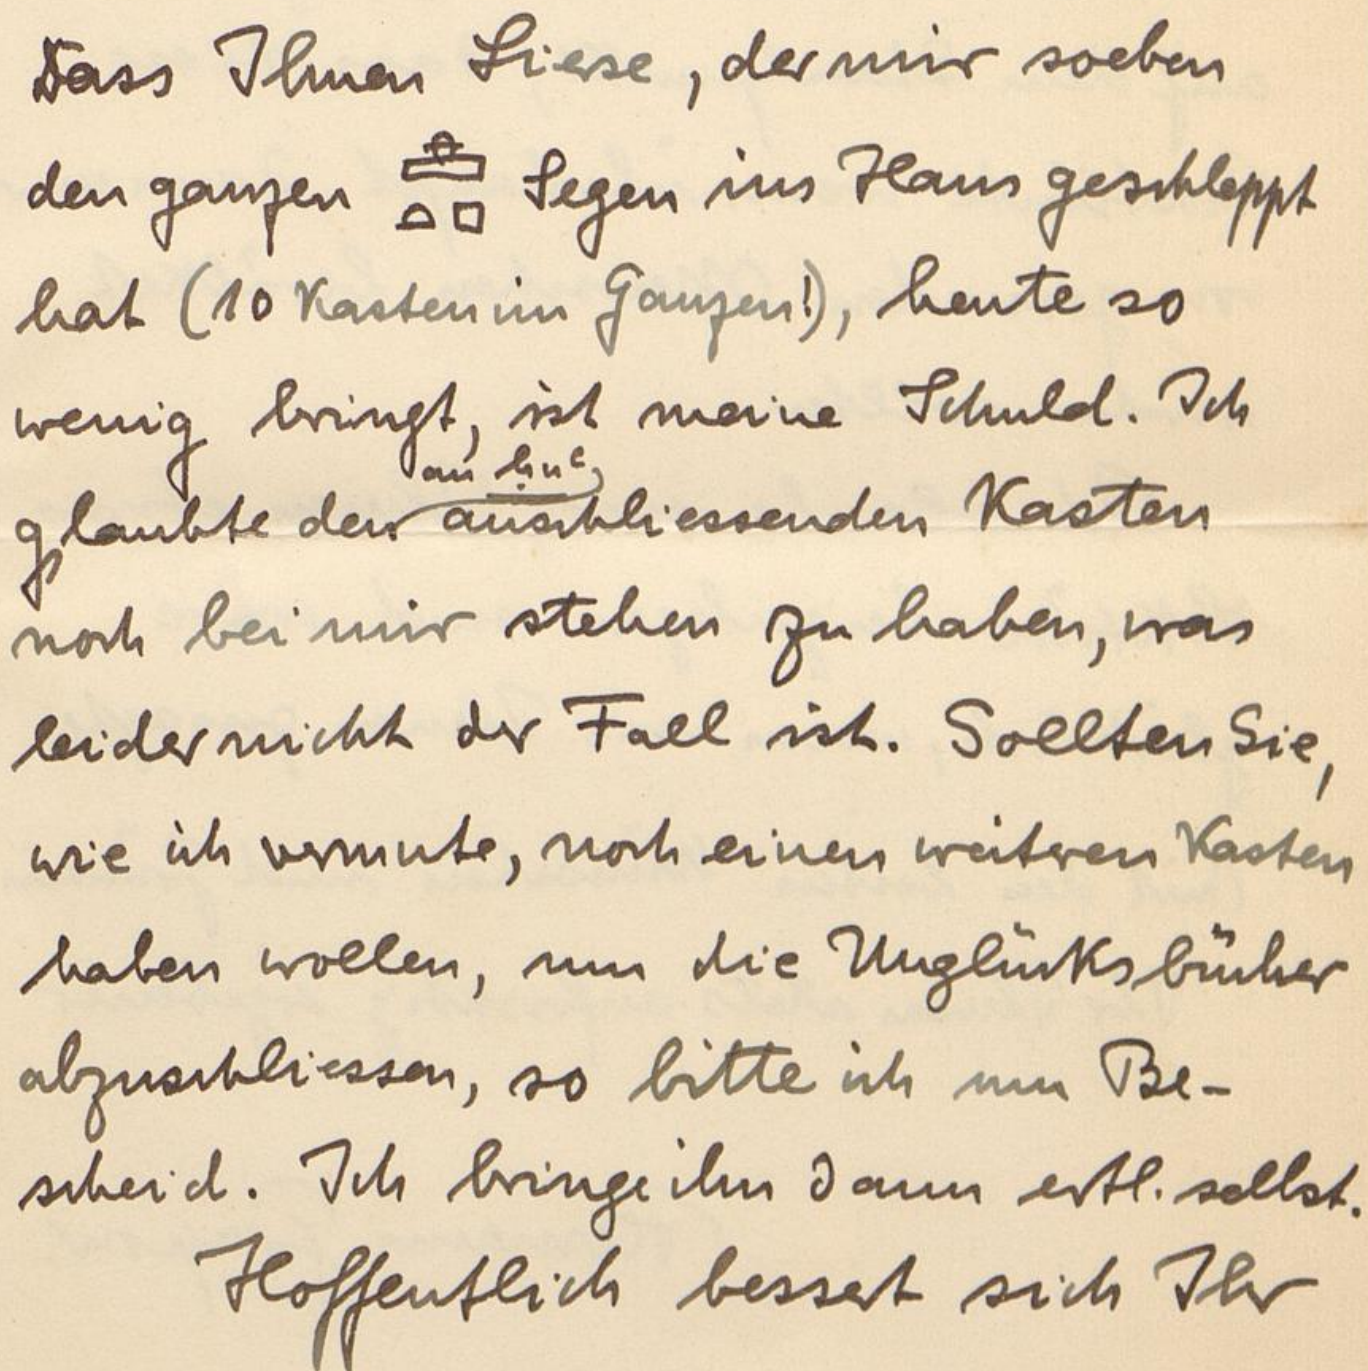 Dass Ihnen , der mir soeben
den ganzen 𓊵𓏏𓊪 Segen ins Haus geschleppt
hat (10 Kasten im Ganzen!), heute so
wenig bringt, ist meine Schuld. Ich
an ḥnᶜ
glaubte den anschliessenden Kasten
noch bei mir stehen zu haben, was
leider nicht der Fall ist. Sollten Sie,
wie ich vermute, noch einen weiteren Kasten
haben wollen, um die Unglücksbücher
abzuschliessen, so bitte ich um Be-
scheid. Ich bringe ihn dann evtl. selbst.
Hoffentlich bessert sich Ihr